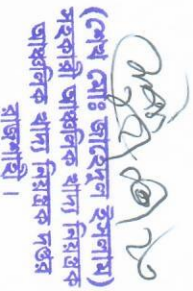 (শেখ মোঃ জাহেদুল ইসলাম)
সহকারী আঞ্চলিক খাদ্য নিয়ন্ত্রক
আঞ্চলিক খাদ্য নিয়ন্ত্রক দপ্তর
রাজশাহী।